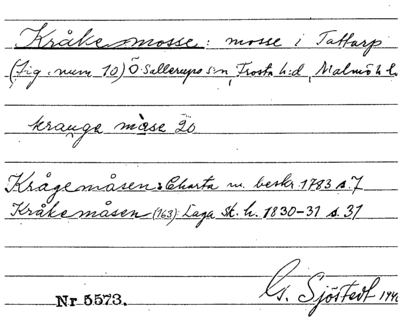 Kråkemosse: mosse i Tattarp
(fig. num 10) Ö. Sallerups sn, Frosta h:d, Malmöh. l.
krauga mase
Krågemåsen: Charta m. beskr. 1783 s. 7
Kråkemåsen (163): Laga sk. h. 1830-31 s. 31
Nr 5573.
G. Sjöstedt